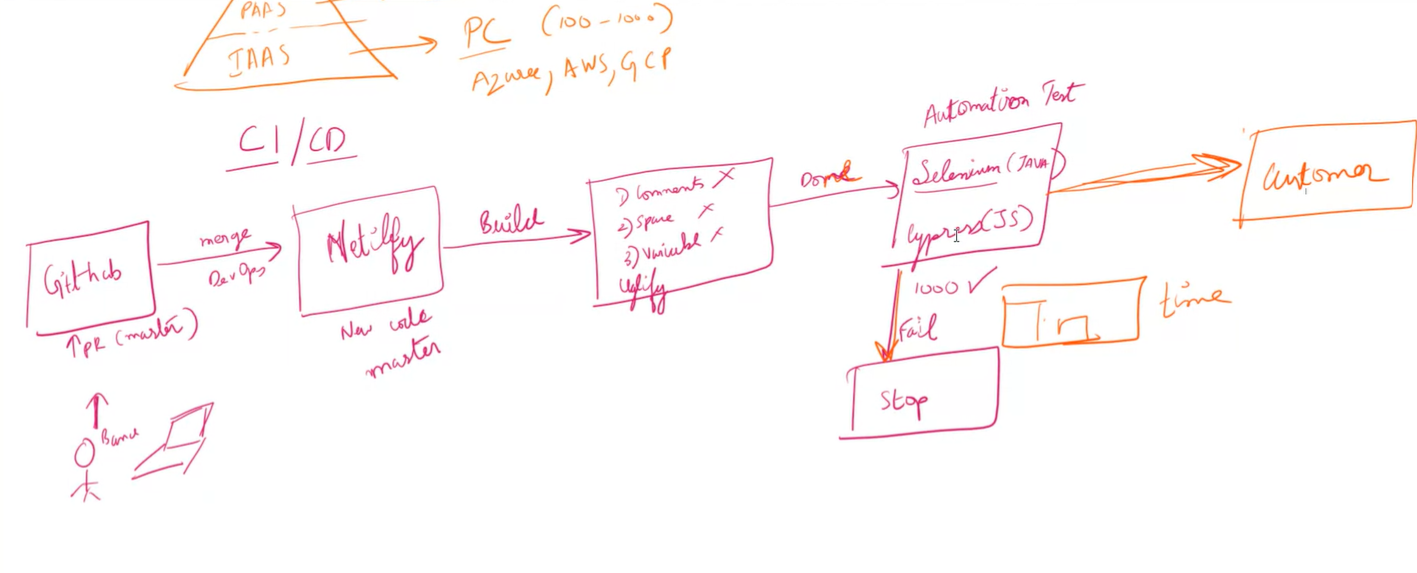 PAAS
IAAS
PC (100-1000)
Azure, AWS, GCP
CI/CD
Github
↑PR (master)
merge
DevOps
Netilfy
New code
master
Build
1) Comments X
2) Space X
3) Variable X
Uglify
Done
Automation Test
Selenium (JAVA)
Cypress(JS)
1000 ✓
Fail
Stop
time
Customer